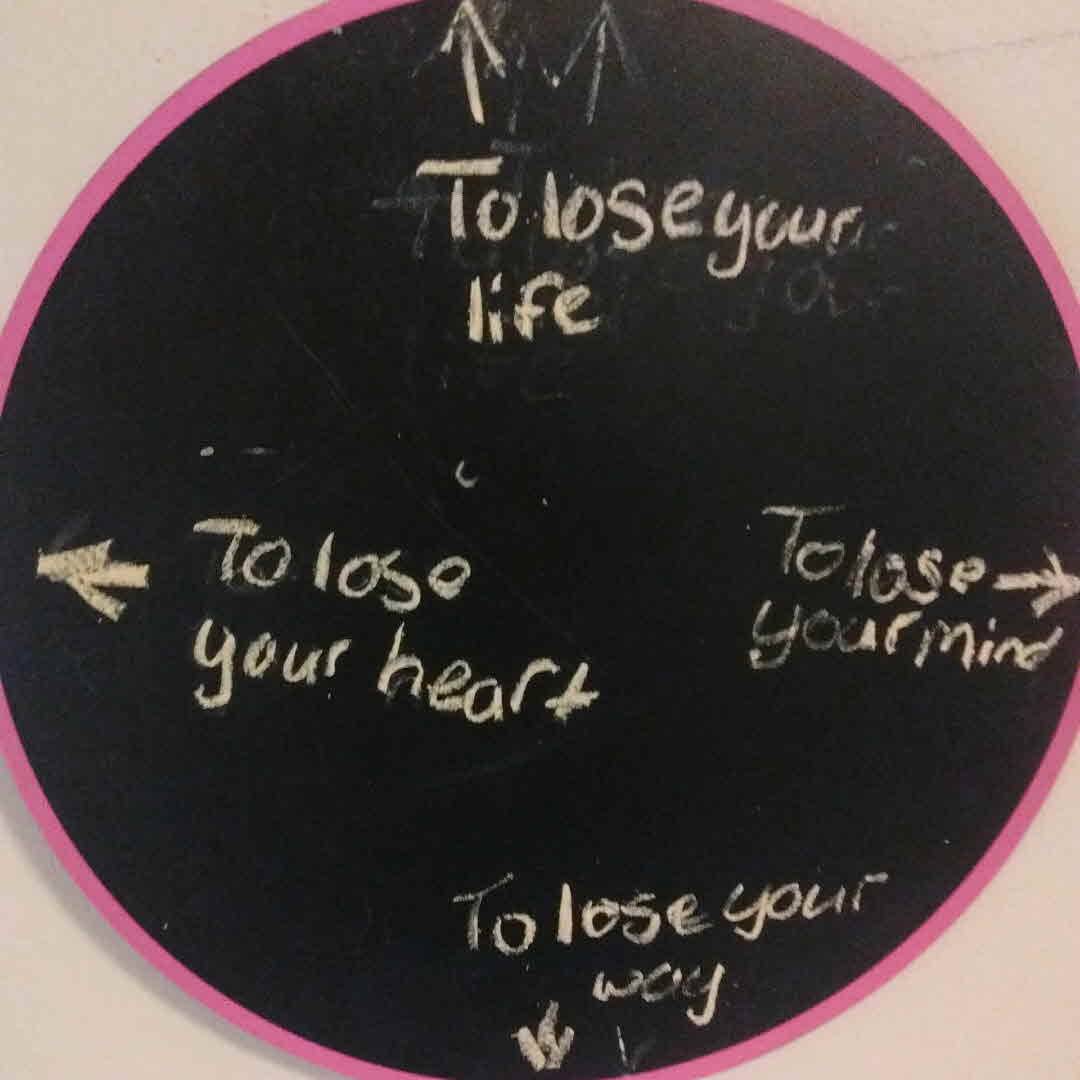 To lose your
life
To lose
your heart
To lose
your mind
To lose your
way